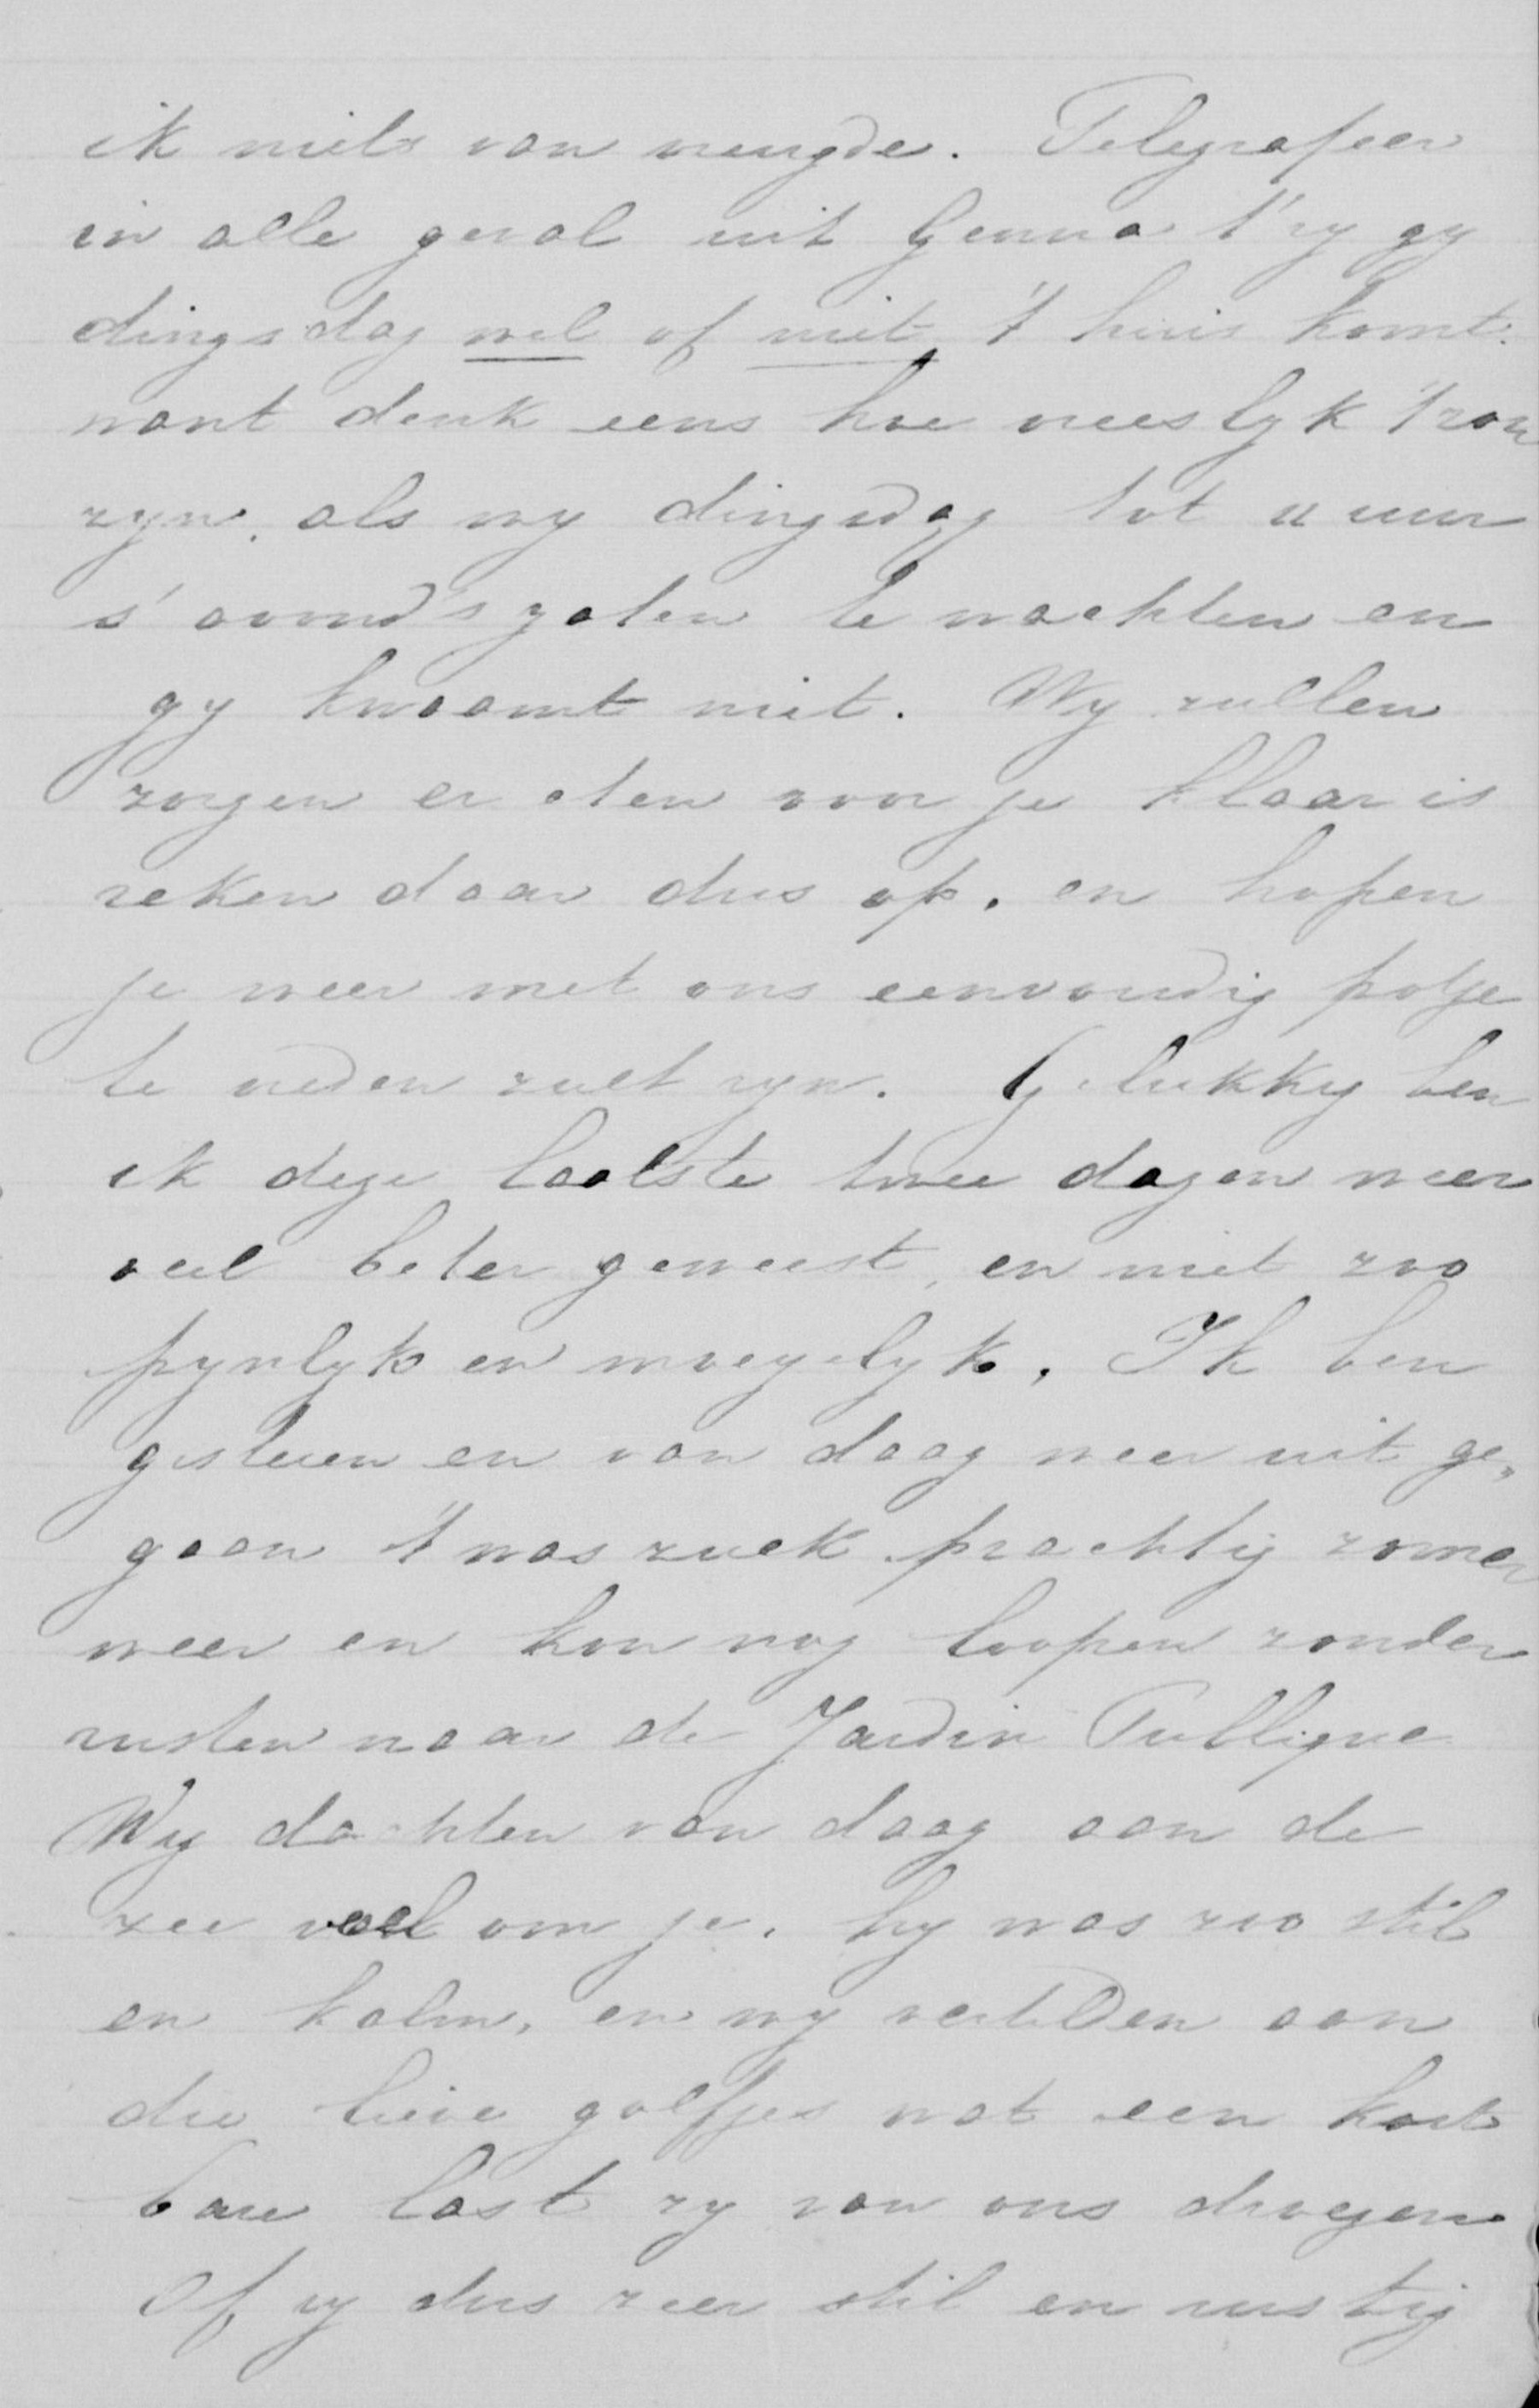 ik niets van vreugde. Telegrafeer
in alle geval uit Genua 't zy gy
dingsdag wel of niet 't huis komt.
want denk eens hoe vreeslyk 't zou
zyn, als wy dingsdag tot 11 uur
s' avond's zaten te wachten en
gy kwaamt niet. Wy zullen
zorgen er eten voor je klaar is
reken daar dus op. en hopen
je weer met ons eenvoudig potje
te vreden zult zyn. Gelukkig ben
ik deze laatste twee dagen weer
veel beter geweest, en niet zoo
pynlyk en moeyelyk. Ik ben
gisteren en van daag weer uit ge„
gaan 't was zulk prachtig zomer
weer en kon nog loopen zonder
rusten naar de Jardin Publique
Wy dachten van daag aan de
zee veel om je. hy was zoo stil
en kalm, en wy vertelden aan
die lieve golfjes wat een kost
bare last zy van ons droegen
Of zy dus zeer stil en rustig